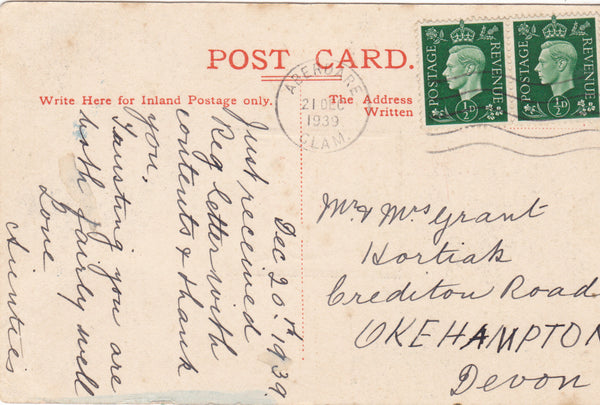 POST CARD.
Write Here for Inland Postage only.
The Address
Written
ABERDARE
21 DEC
1939
GLAM.
POSTAGE REVENUE
½D
POSTAGE REVENUE
½D
Dec 20.th 1939.
Just received
Reg letter with
contents & thank
you,
Trusting you are
both fairly well
Love
Aunties
Mr & Mrs Grant
Hortiak
Crediton Road
OKEHAMPTON
Devon